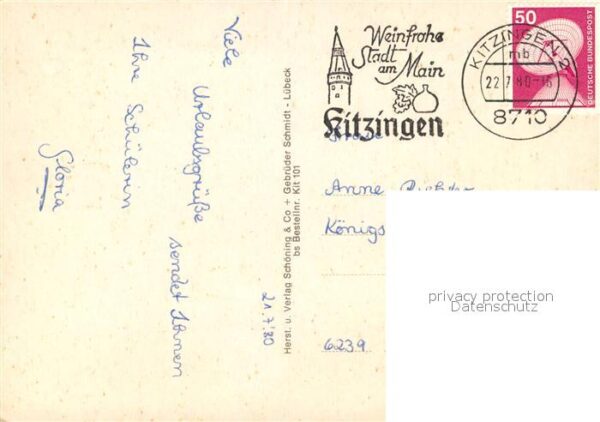 Viele
Urlaubsgrüße
sendet Ihnen
Ihre Schülerin
Gloria
21.7.80
Herst. u. Verlag Schöning & Co + Gebrüder Schmidt - Lübeck
bs Bestellnr. Kit 101
Weinfrohe
Stadt
am Main
Kitzingen
KITZINGEN 2
mb
22.7.80-16
8710
50
DEUTSCHE BUNDESPOST
Anne
Königs
6239
privacy protection
Datenschutz